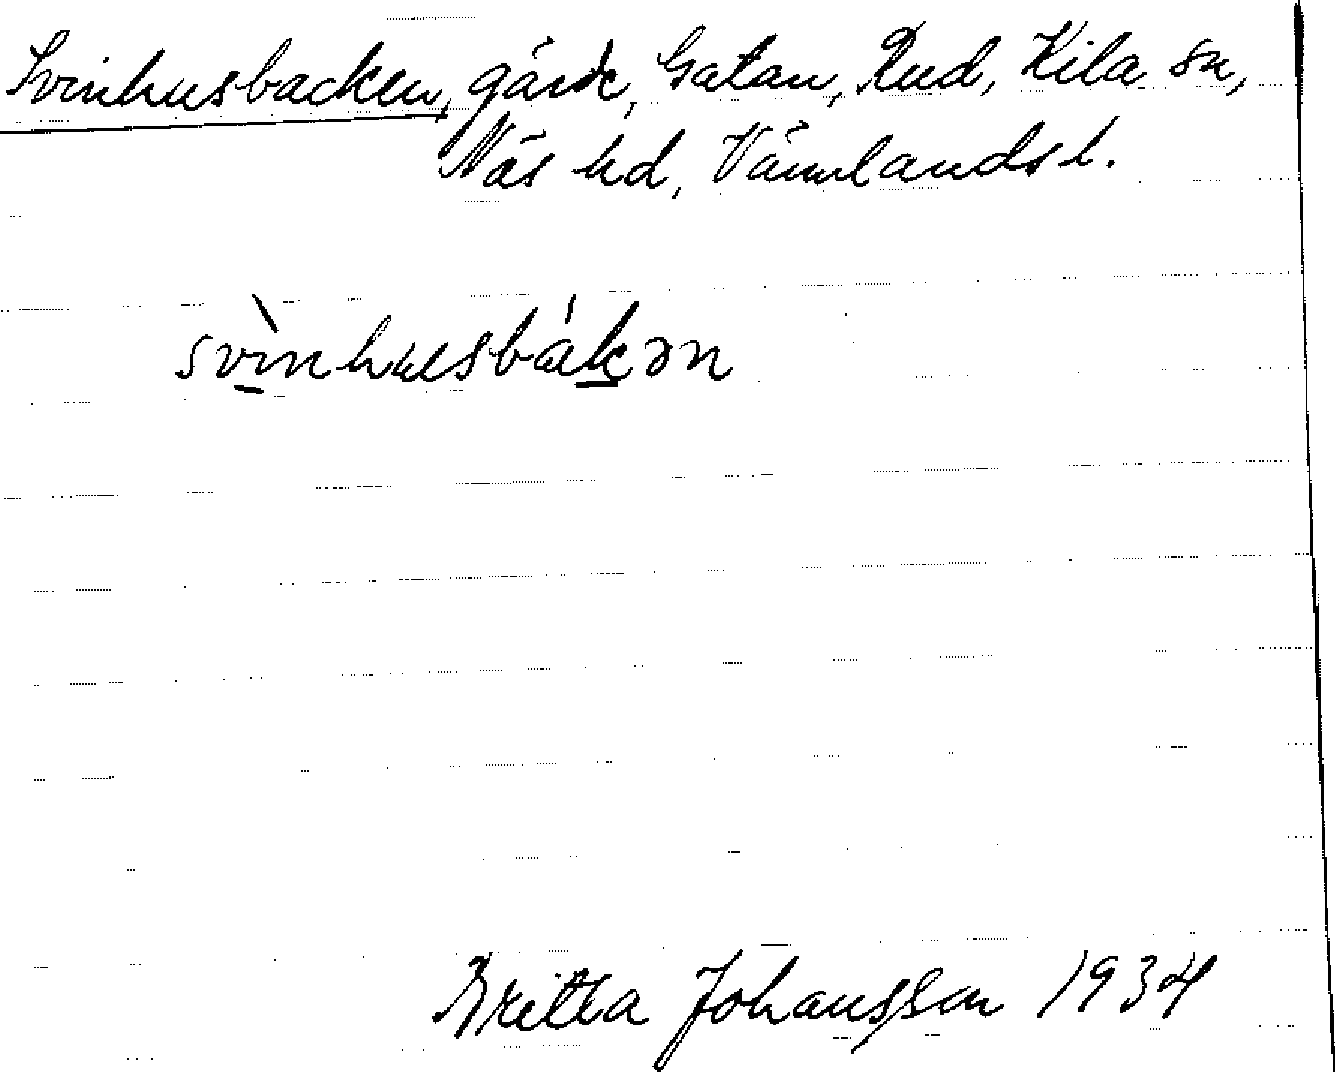 Svinhusbacken, gärde, Gatan, Rud, Kila sn,
Näs hd, Värmlands l.
svìnhusbákən
Britta Johansson 1934